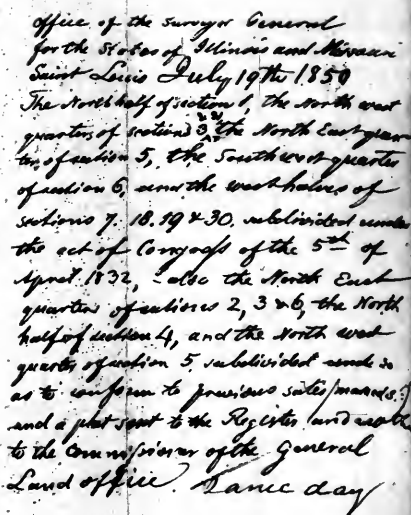 office of the Surveyor General
for the States of Illinois and Missouri
Saint Louis July 19th 1850
The North half of section 1, the North west
quarters of sections 3, the North East quar
ter of section 5, the Southwest quarter
of section 6, and the west halves of
sections 7. 18. 19 & 30. subdivided under
the act of Congress of the 5th of
April 1832, - also the North East
quarters of sections 2, 3 & 6, the North
half of section 4, and the North west
quarter of section 5 subdivided made so
as to conform to previous sales
and a plat sent to the Register and
to the Commissioner of the General
Land office. Same day